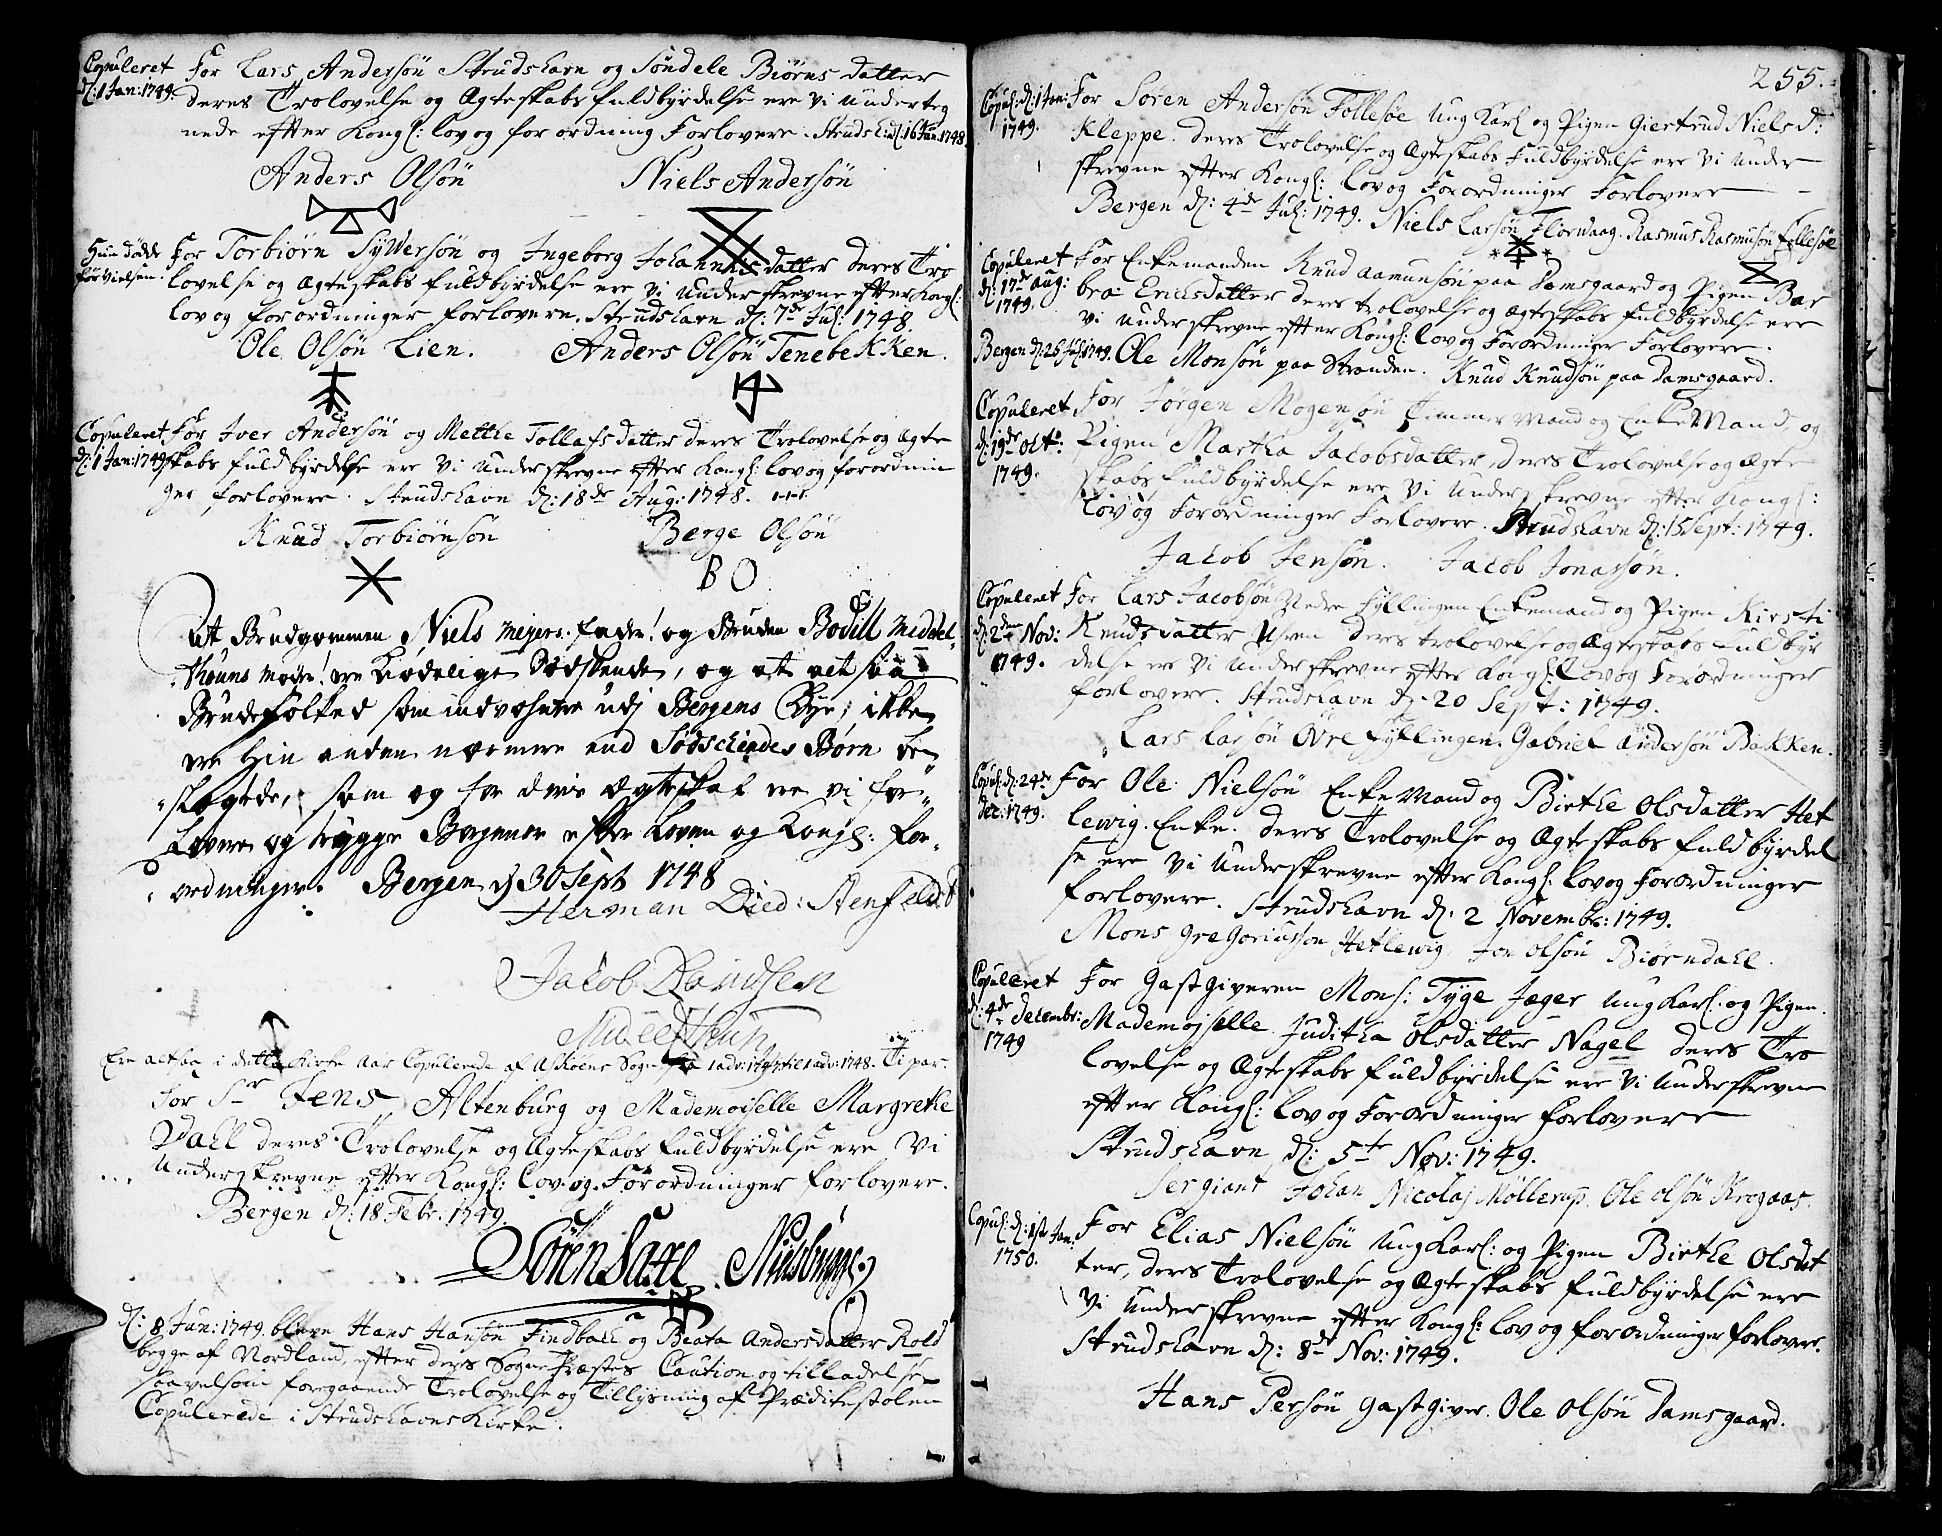 Copuleret
d: 1 Jan: 1749.
For Lars Andersøn Strudshavn og Søndele Biørns datter
deres Trolovelse og Ægteskabs fuldbyrdelse ere vi underteg
nede efter Kongl: lov og forordning Forlovere. Strudsh: d: 16 Jun: 1748.
Anders Olsøn Niels Andersøn
Hun døde
før Vielsen.
For Torbiørn Sÿversøn og Ingeborg Johannis datter deres Tro
lovelse og Ægteskabs fuldbyrdelse ere vi underskrevne efter Kongl:
lov og forordninger forlovere. Strudshavn d: 7de Jul: 1748
Ole Olsøn Lien. Anders Olsøn Tenebekken.
Copuleret
d: 1 Jan: 1749
For Iver Andersøn og Metthe Tollafsdatter deres Trolovelse og Ægte
skabs fuldbyrdelse ere vi underskrevne efter Kongl: lov og forordnin
ger forlovere. Strudshavn d: 18de Aug: 1748.
Knud Torbiørnsøn Berge Olsøn
B O
At Brudgommen Niels Meyers fader og Bruden Bodill Middel
thuns moder ere Kiødelige Sødskende, og at altsaa
Brudefolked som indvohnere udj Bergens Bye, ikke
ere hin anden nærmere end Sødschendes Børn be
slegtede, som og for deris Ægteskab ere vi for
lovere og trygge Borgener efter loven og Kongl: for
ordninger. Bergen d 30 Sept 1748
Herman Died: Stenfeldt
Jacob Davidsen
Middelthun
Ere altsaa i dette Kirke Aar Copulerede af Askøens Sogn fra 1 adv: 1747 til 1 adv: 1748. Ti par.
For Sr Jens Altenburg og Mademoiselle Margrethe
Dahl deres Trolovelse og Ægteskabs fuldbyrdelse ere vi
underskrevne efter Kongl: Lov og Forordninger forlovere.
Bergen d: 18 Febr. 1749.
Søren Saxe Nielsbygge
d: 8 Jun: 1749 bleve Hans Hansøn Findball og Beata Andersdatter Rold
begge af Nordland, efter deres Sogne Præstes Caution og tilladelse
saavelsom foregaaende Trolovelse og Tillysning af Prædikestolen
Copulerede i Strudshavns Kirke.
255.
Copul: d: 1 Jan:
1749.
For Søren Andersøn Follesøe Ung Karl og Pigen Giertrud Niels D:
Kleppe. deres Trolovelse og Ægteskabs Fuldbyrdelse ere vi under
skrevne efter Kongl: lov og Forordninger Forlovere
Bergen d: 4de Jul: 1749. Niels Larsøn Florvaag. Rasmus Rasmusøn Follesøe
Copuleret
d: 17de Aug:
1749.
For Enkemanden Knud Aamunsøn paa Damsgaard og Pigen Bar
bra Erichsdatter deres trolovelse og Ægteskabs fuldbyrdelse ere
vi underskrevne efter Kongl: lov og Forordninger Forlovere.
Bergen d: 26 Jul: 1749. Ole Monsøn paa Stranden. Knud Knudsøn paa Damsgaard.
Copuleret
d: 19de Oct:
1749.
For Jørgen Mogensøn Timmermand og Enkemand, og
Pigen Martha Jacobsdatter, deres Trolovelse og Ægte
skabs fuldbyrdelse ere vi underskrevne efter Kongl:
Lov og Forordninger Forlovere. Strudshavn d: 15 Sept: 1749.
Jacob Jensøn. Jacob Jonassøn.
Copuleret
d: 2den Nov:
1749.
For Lars Jacobsøn Nedre Fyllingen Enkemand og Pigen Kirsti
Knudsdatter deres trolovelse og Ægteskabs Fuldbyr
delse ere vi underskrevne efter Kongl: Lov og Forordninger
forlovere. Strudshavn d: 20 Sept: 1749.
Lars Larsøn Øvre Fyllingen. Gabriel Andersøn Bakken.
Copul: d: 24de
Dec: 1749.
For Ole Nielsøn Enkemand og Birthe Olsdatter Het
lewig. Enke. deres Trolovelse og Ægteskabs fuldbyrdel
se ere vi underskrevne efter Kongl: lov og Forordninger
forlovere. Strudshavn d: 2 Novembr: 1749.
Mons Gregoriussøn Hetlewig Joe Olsøn Biørndahl.
Copuleret
d: 4de Decembr:
1749
For Gastgiveren Mons: Tyge Jæger Ung Karl. og Pigen
Mademojselle Juditha Olsdatter Nagel deres Tro
lovelse og Ægteskabs fuldbyrdelse ere vi underskrevne
efter Kongl: lov og Forordninger forlovere
Strudshavn d: 5te Nov: 1749.
Sergiant Johan Nicolaj Møllerup. Ole Olsøn Krogaas.
Copul: d: 1ste Jan:
1750.
For Elias Nielsøn Ung Karl: og Pigen Birthe Olsdat
ter, deres Trolovelse og Ægteskabs fuldbyrdelse ere
vi underskrevne efter Kongl: lov og forordninger forlovere.
Strudshavn d: 8de Nov: 1749.
Hans Persøn Gastgiver. Ole Olsøn Damsgaard.